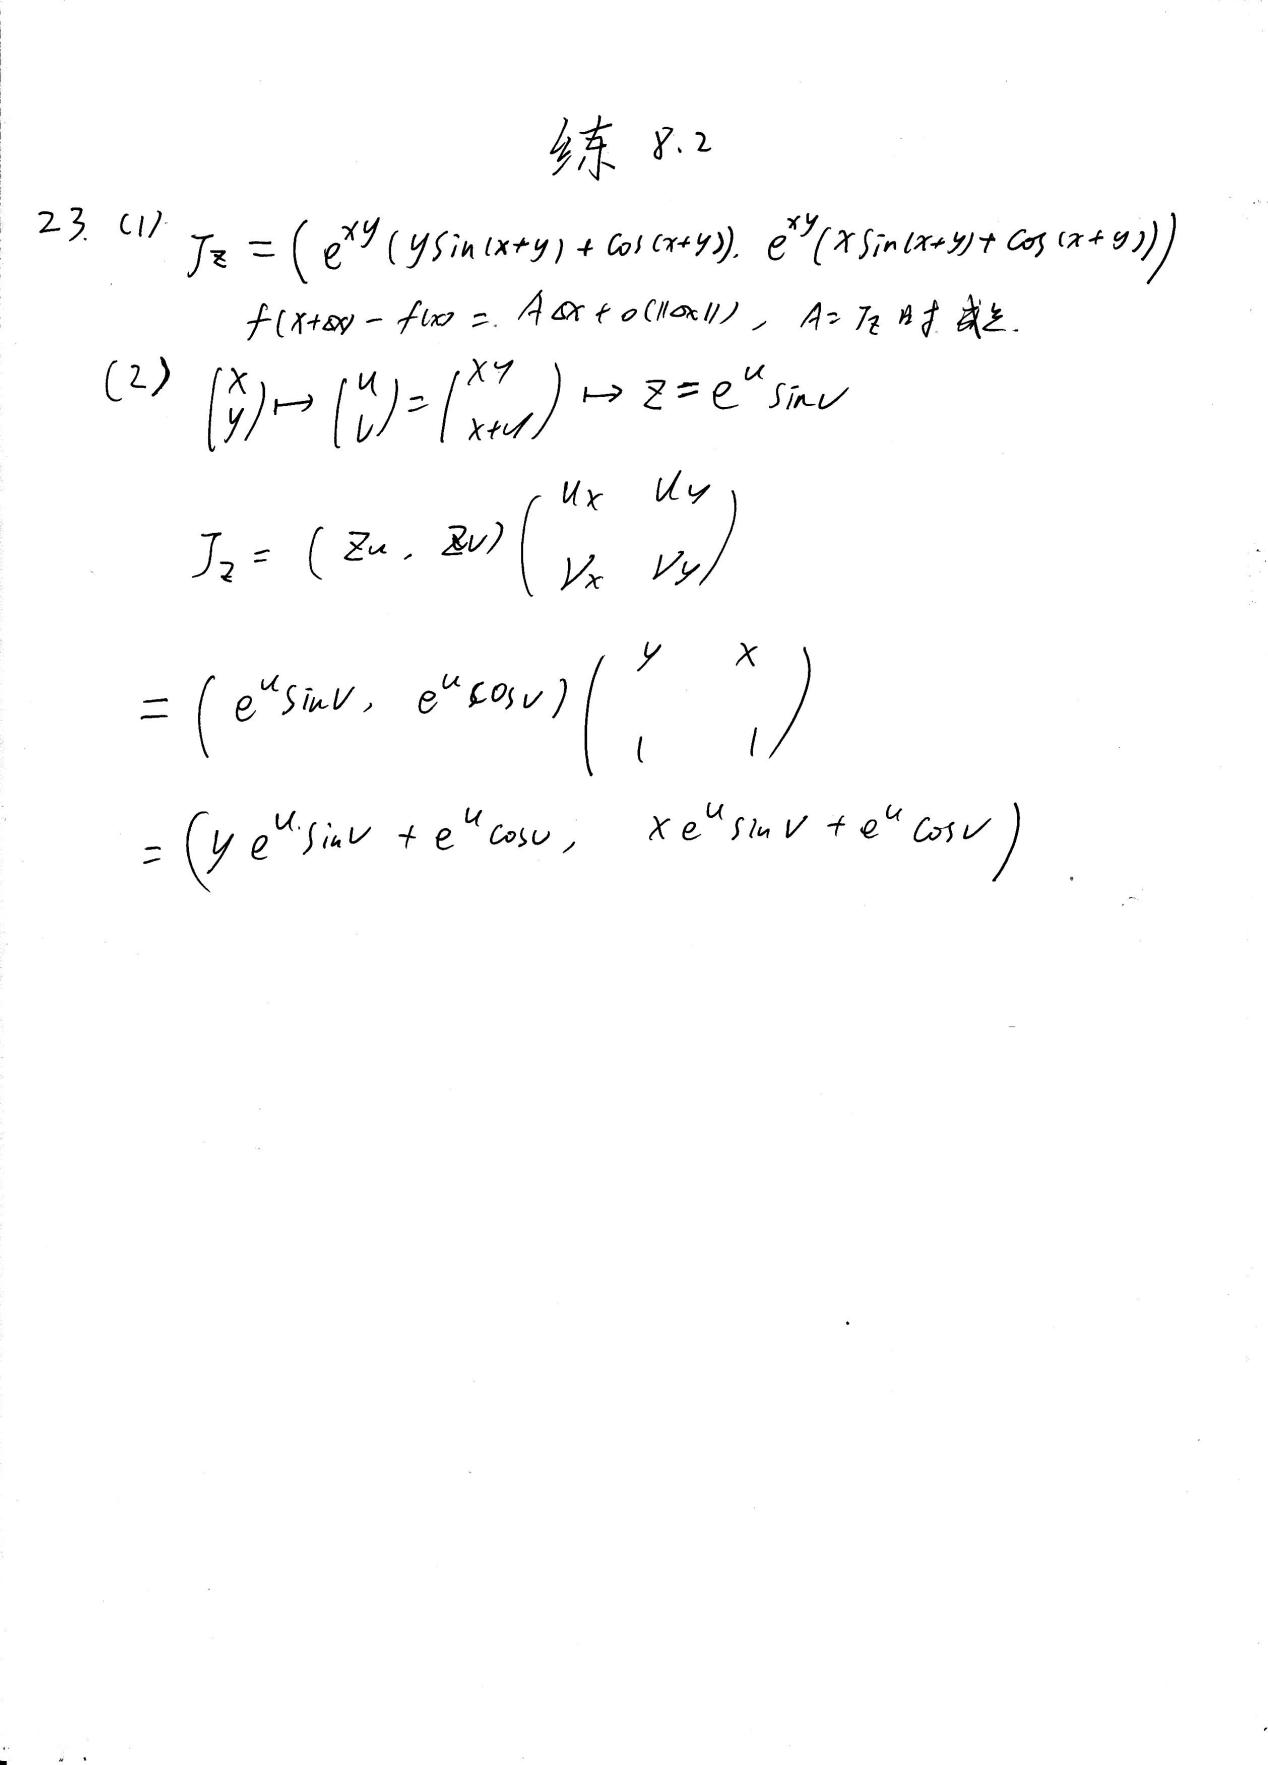 练 8.2
23. (1) J_z = ( e^{xy} (y sin(x+y) + cos(x+y)). e^{xy} (x sin(x+y) + cos(x+y)))
f(x+Δx) - f(x) =. AΔx + o(||Δx||), A = J_z 时 成立.
(2) (x y) ↦ (u v) = (xy x+y) ↦ z = e^u sin v
J_z = ( z_u , z_v ) ( u_x u_y v_x v_y )
= ( e^u sin v, e^u cos v ) ( y x 1 1 )
= ( y e^u sin v + e^u cos v, x e^u sin v + e^u cos v ) .